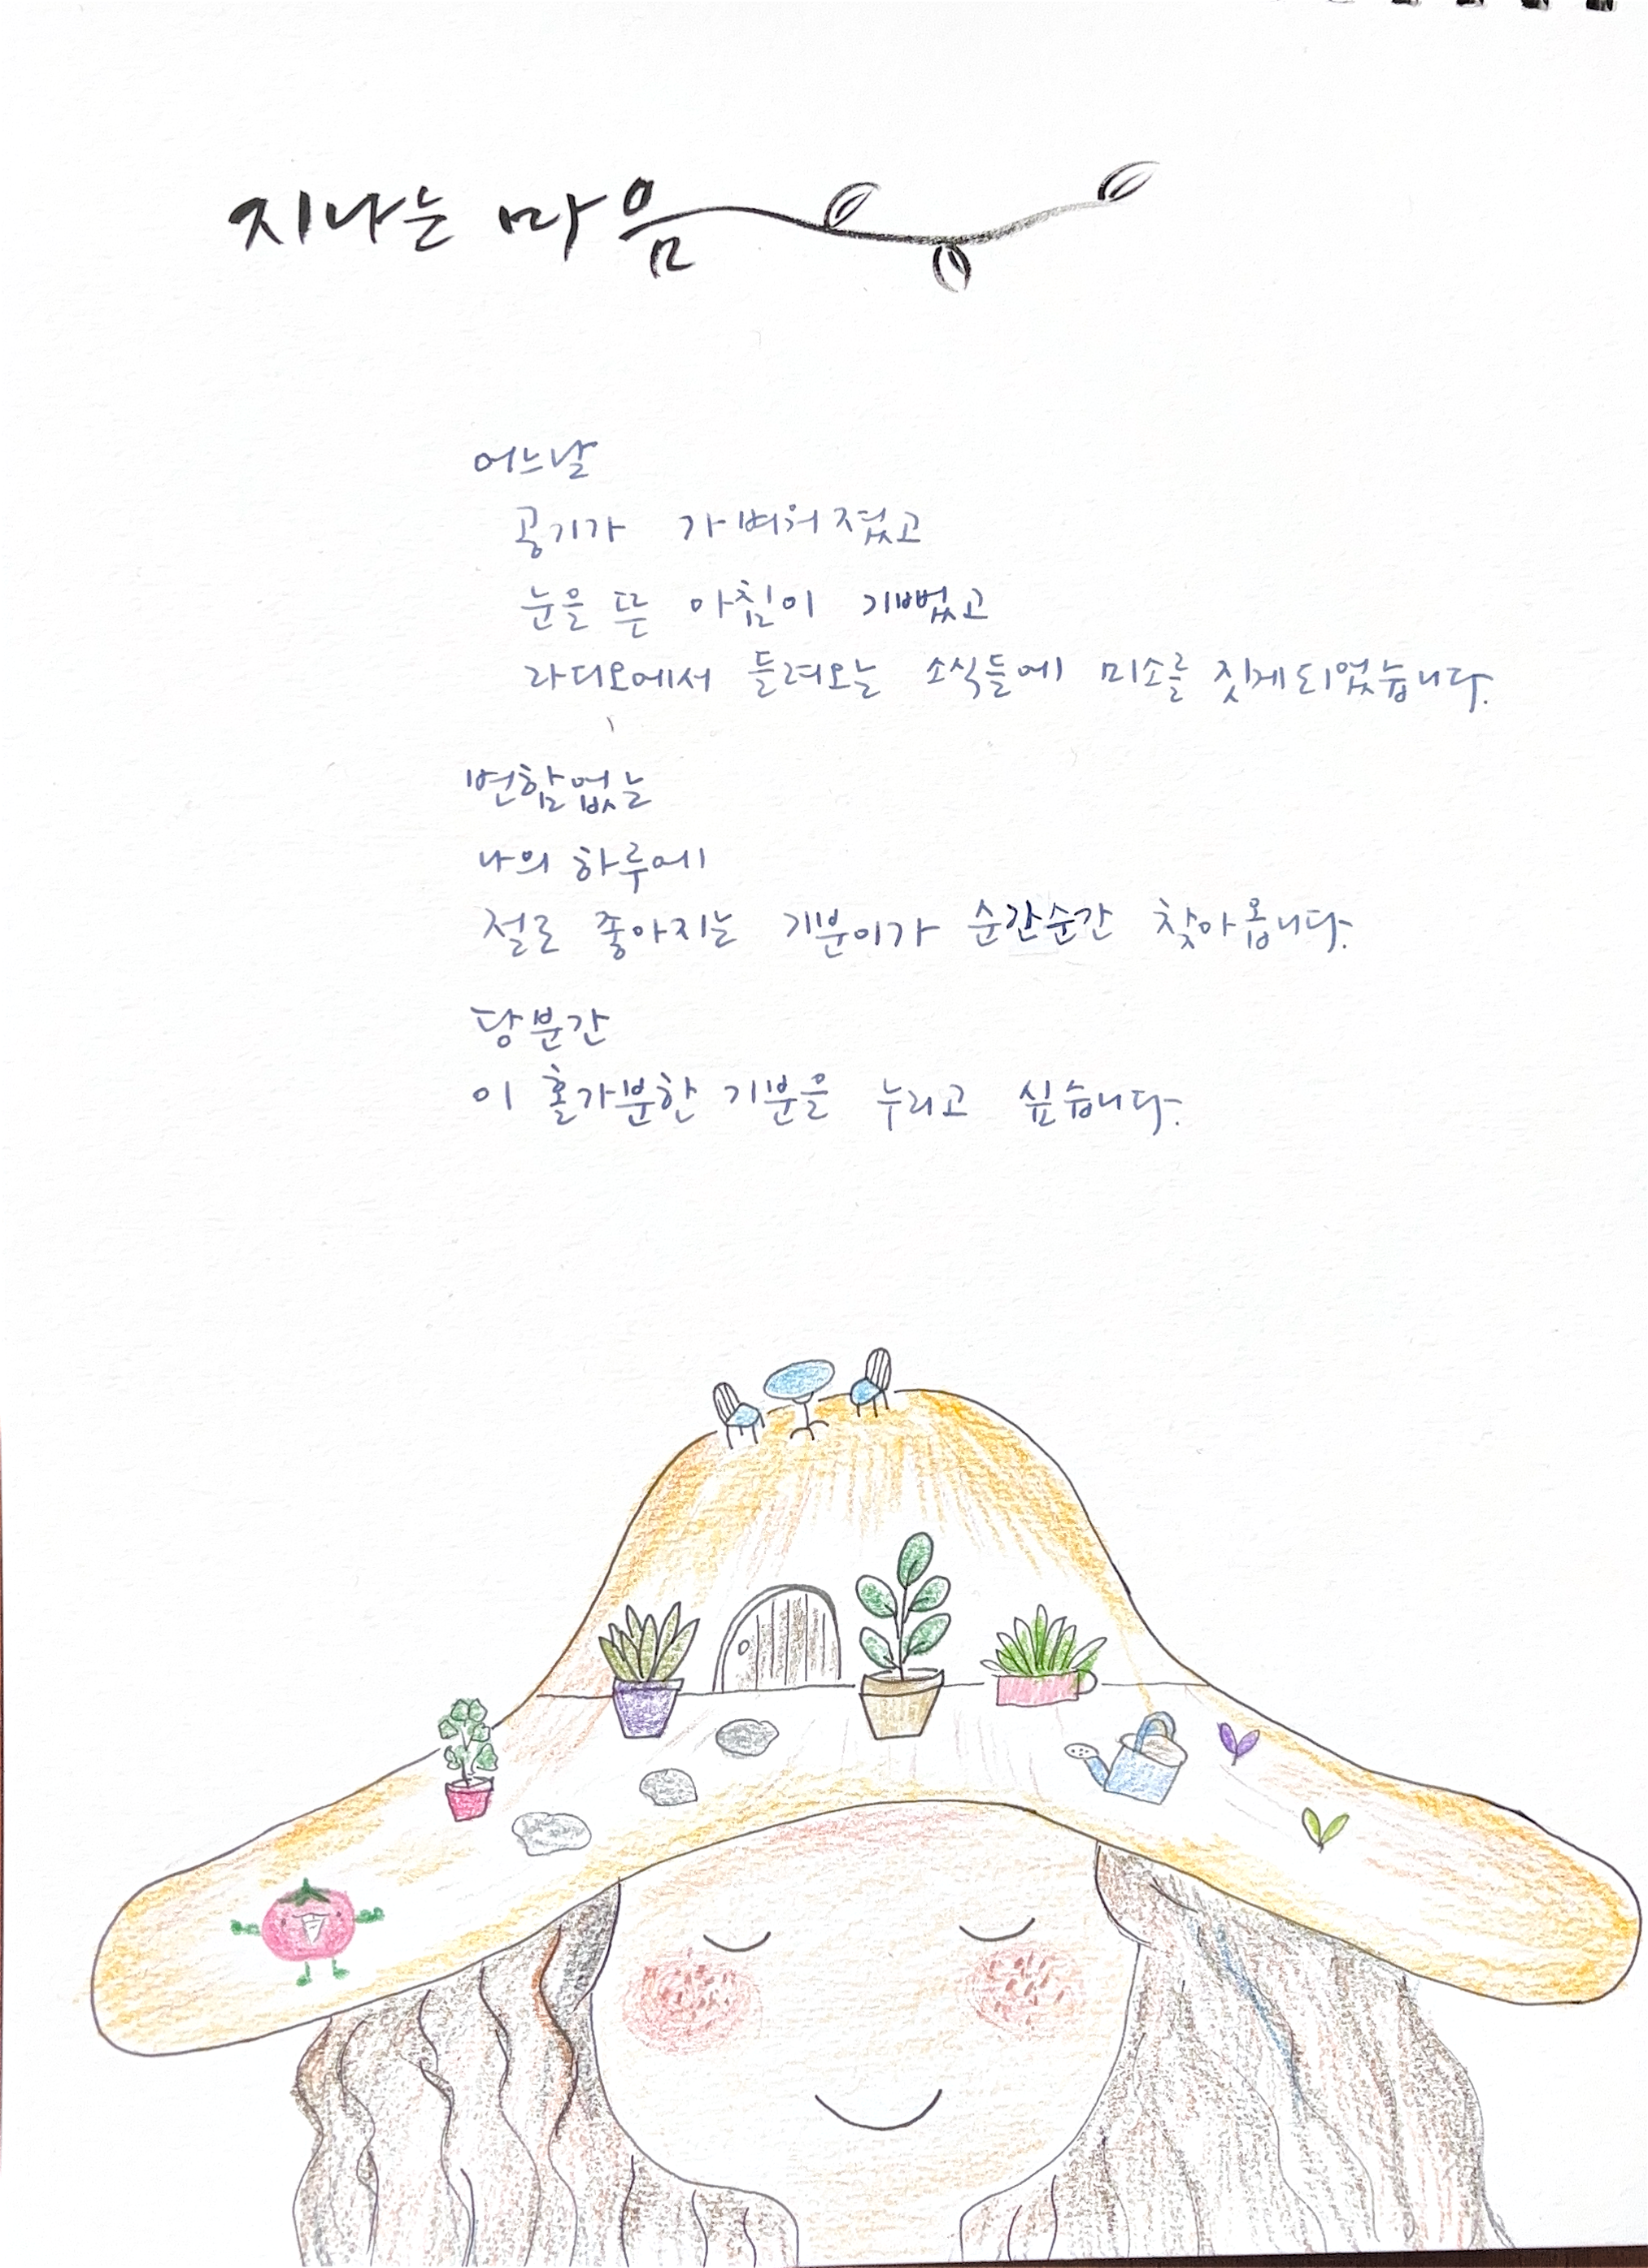 지나는 마음
어느날
공기가 가벼워졌고
눈을 뜬 아침이 기뻤고
라디오에서 들려오는 소식들에 미소를 짓게되었습니다.
변함없는
나의 하루에
절로 좋아지는 기분이가 순간순간 찾아옵니다.
당분간
이 홀가분한 기분을 누리고 싶습니다.